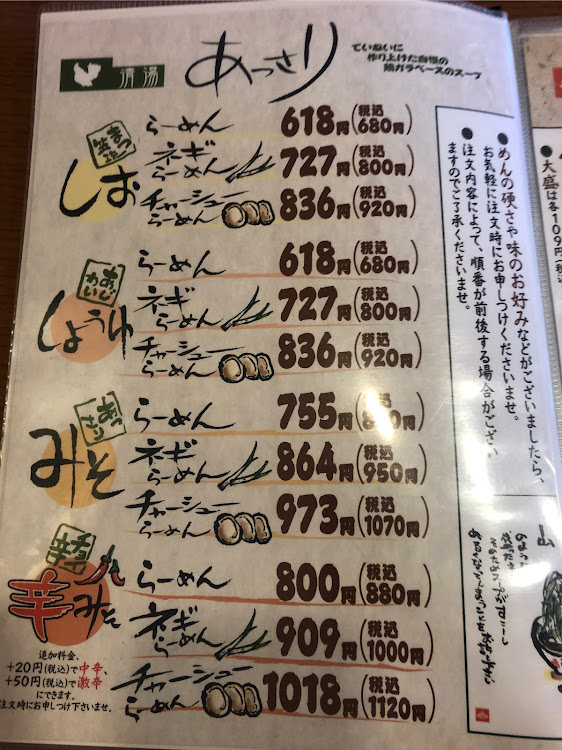 清湯
あっさり
ていねいに
作り上げた自慢の
鶏ガラベースのスープ
しお
らーめん 618円(税込680円)
ネギらーめん 727円(税込800円)
チャーシューらーめん 836円(税込920円)
しょうゆ
らーめん 618円(税込680円)
ネギらーめん 727円(税込800円)
チャーシューらーめん 836円(税込920円)
みそ
らーめん 755円(税込
ネギらーめん 864円(税込950円)
チャーシューらーめん 973円(税込1070円)
辛みそ
らーめん 800円(税込880円)
ネギらーめん 909円(税込1000円)
チャーシューらーめん 1018円(税込1120円)
追加料金、
+20円(税込)で中辛、
+50円(税込)で激辛
にできます。
注文時にお申しつけ下さいませ。
大盛は各109円(税込
●めんの硬さや味のお好みなどがございましたら、
お気軽に注文時にお申しつけくださいませ。
●注文内容によって、順番が前後する場合がござい
ますのでご了承くださいませ。
山